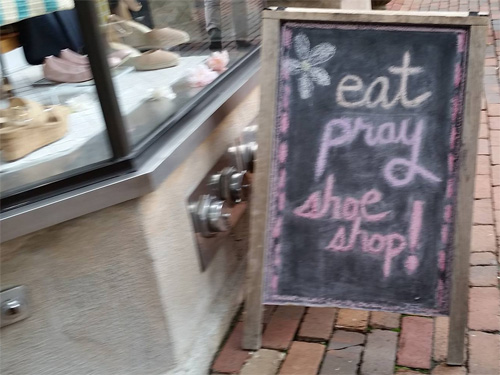 eat
pray
shoe
shop!